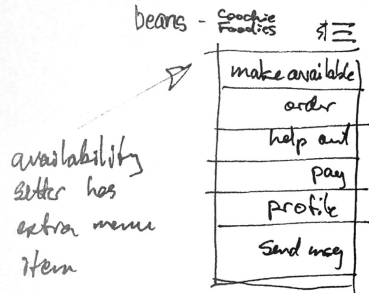 beans - Coochie
Foodies
make available
order
help out
pay
profile
send msg
availability
setter has
extra menu
item